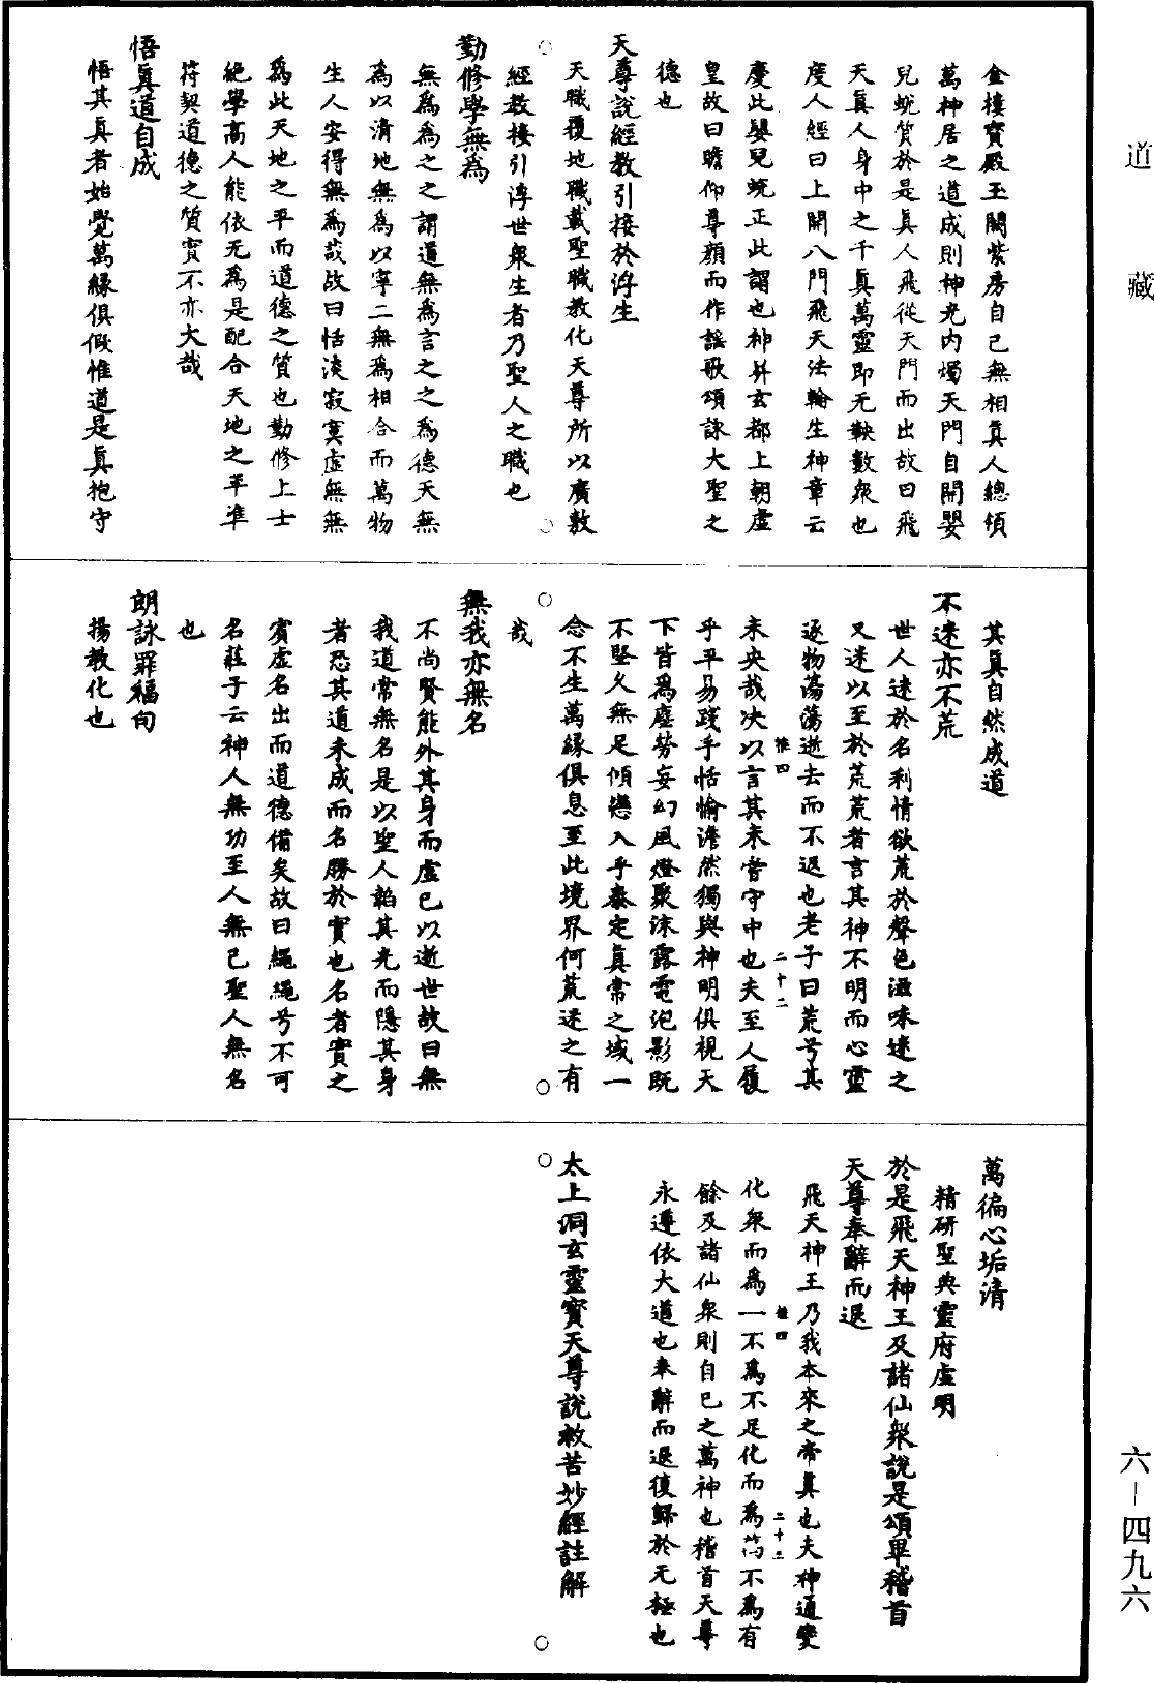 道藏
金樓寶殿玉闕紫房自己無相真人總領
萬神居之道成則神光内燭天門自開嬰
兒蛻質於是真人飛從天門而出故曰飛
天真人身中之千真萬靈即无鞅數衆也
度人經曰上開八門飛天法輪生神章云
慶此嬰兒蛻正此謂也神升玄都上朝虛
皇故曰瞻仰尊顔而作謡歌頌詠大聖之
德也
天尊說經教引接於浮生
天職覆地職載聖職教化天尊所以廣敷
經教接引浮世衆生者乃聖人之職也
勤修學無為
無為為之之謂道無為言之之為德天無
為以清地無為以寧二無為相合而萬物
生人安得無為哉故曰恬淡寂寞虛無無
為此天地之平而道德之質也勤修上士
絶學高人能依无為是配合天地之平準
符契道德之質實不亦大哉
悟真道自成
悟其真者始覺萬緣俱假惟道是真抱守
其真自然成道
不迷亦不荒
世人迷於名利情欲荒於聲色滋味迷之
又迷以至於荒荒者言其神不明而心靈
逐物蕩蕩逝去而不返也老子曰荒兮其
推四
二十二
未央哉决以言其未嘗守中也夫至人履
乎平易踐乎恬愉澹然獨與神明俱視天
下皆為塵勞妄幻風燈聚沫露電泡影既
不堅久無足傾戀入乎泰定真常之域一
念不生萬緣俱息至此境界何荒迷之有
哉
無我亦無名
不尚賢能外其身而虛己以逝世故曰無
我道常無名是以聖人韜其光而隱其身
者恐其道未成而名勝於實也名者實之
賓虛名出而道德備矣故曰繩繩兮不可
名莊子云神人無功至人無己聖人無名
也
朗詠罪福句
揚教化也
萬徧心垢清
精研聖典靈府虛明
於是飛天神王及諸仙衆說是頌畢稽首
天尊奉辭而退
飛天神王乃我本來之帝真也夫神通變
推四
二十三
化衆而為一不為不足化而為萬不為有
餘及諸仙衆則自己之萬神也稽首天尊
永遵依大道也奉辭而退復歸於无極也
太上洞玄靈寶天尊說救苦妙經註解
六－四九六